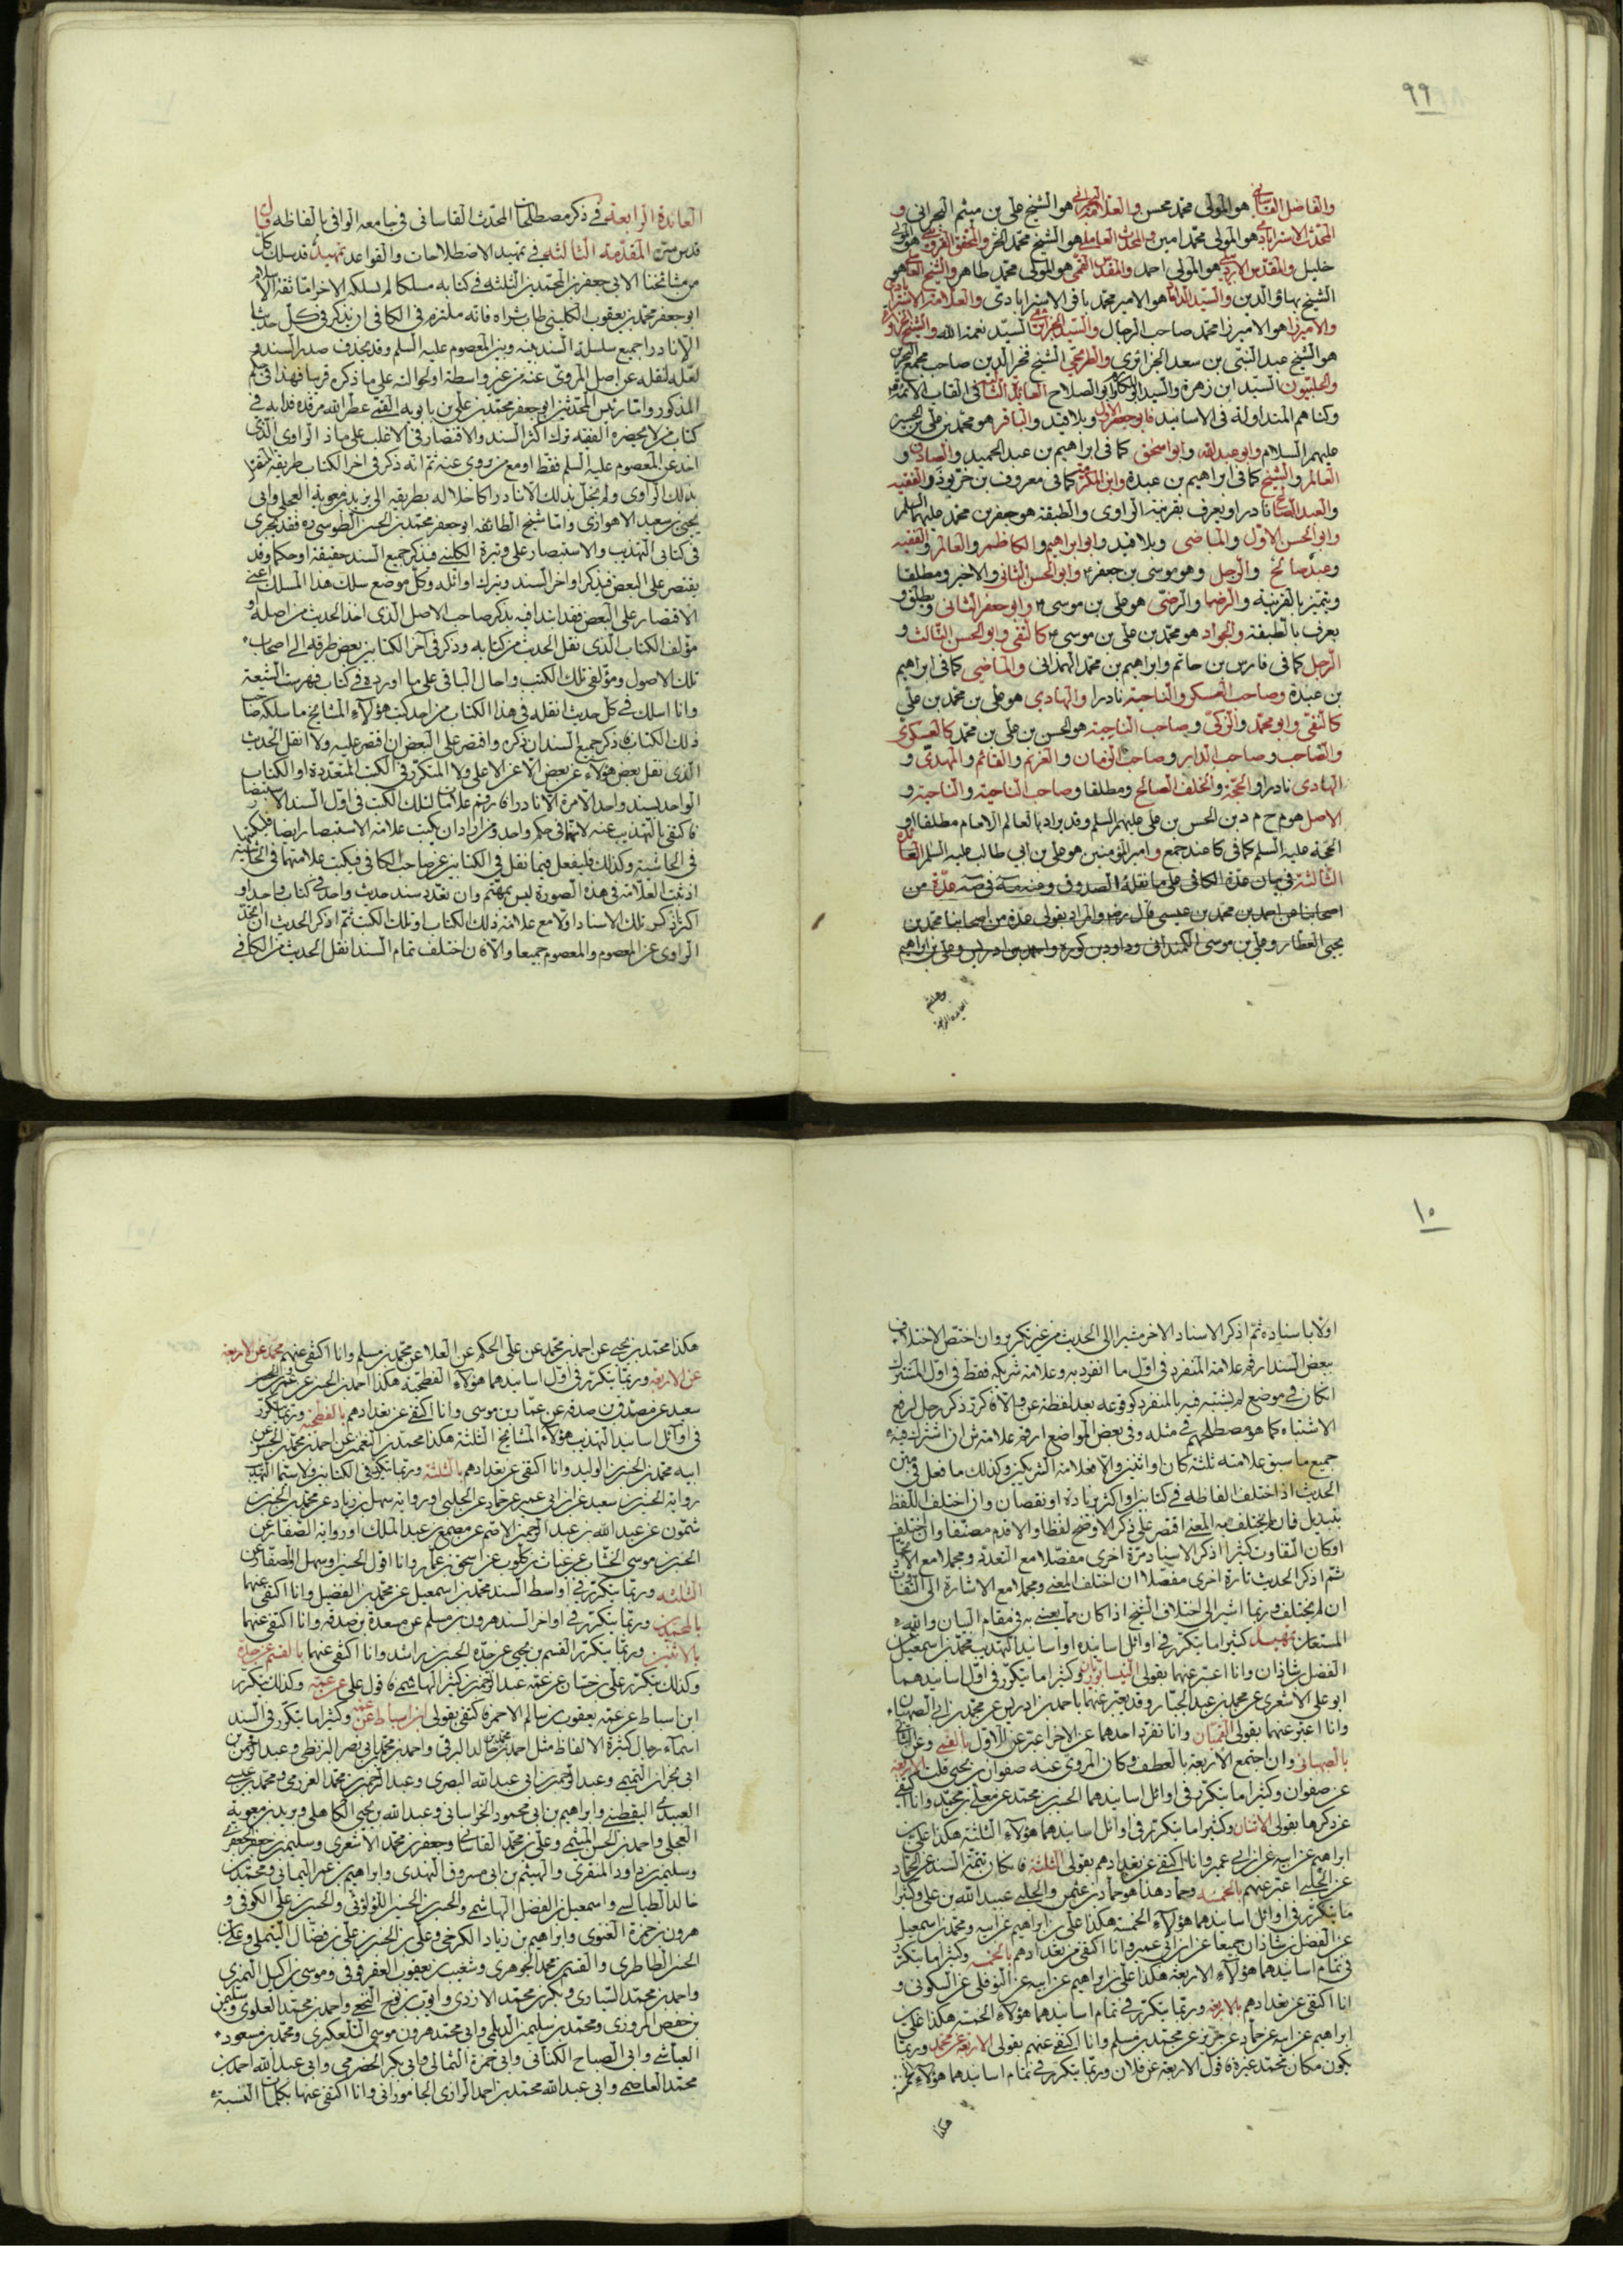 ٩٩
والفاضل القاساني هو المولى محمد محسن والعلامة البحراني هو الشيخ علي بن ميثم البحراني و
المحدث الاسترابادي هو المولى محمد امين والمحدث العاملي هو الشيخ محمد الحر والمحقق القزويني هو المولى
خليل والمقدس الاردبيلي هو المولى احمد والمقدس القمي هو المولى محمد طاهر والشيخ العاملي هو
الشيخ بهاؤ الدين والسيد الداماد هو الامير محمد باقر الاسترابادي والعلامة الاسترابادي
والاميرزا هو الاميرزا محمد صاحب الرجال والسيد الجزائري السيد نعمة الله والشيخ الجزائري
هو الشيخ عبد النبي بن سعد الجزائري والطريحي الشيخ فخر الدين صاحب مجمع البحرين
والحلبيون السيد ابن زهرة والسيد ابو المكارم وابو الصلاح العائدة الثانية في القاب الائمة
وكناهم المتداولة في الاسانيد فابو جعفر الاول وبلا قيد والباقر هو محمد بن علي بن الحسين
عليهم السلام وابو عبد الله وابو اسحق كما في ابراهيم بن عبد الحميد والصادق و
العالم والشيخ كما في ابراهيم بن عبدة وابن المكرمة كما في معروف بن خربوذ والفقيه
والعبد الصالح نادرا ويعرف بقرينة الراوي والطبقة هو جعفر بن محمد عليهما السلم
وابو الحسن الاول والماضي وبلا قيد وابو ابراهيم والكاظم والعالم والفقيه
وعبد صالح والرجل وهو موسى بن جعفر ع وابو الحسن الثاني والاخير ومطلقا
ويتميز بالقرينة والرضا والرضي هو علي بن موسى ع وابو جعفر الثاني ويطلق و
يعرف بالطبقة والجواد هو محمد بن علي بن موسى ع كالتقي وابو الحسن الثالث و
الرجل كما في فارس بن حاتم وابراهيم بن محمد الهمذاني والماضي كما في ابراهيم
بن عبدة وصاحب العسكر والناحية نادرا والهادي هو علي بن محمد بن علي
كالنقي وابو محمد والزكي وصاحب الناحية هو الحسن بن علي بن محمد كالعسكري
والصاحب وصاحب الدار وصاحب الزمان والغريم والقائم والمهدي و
الهادي نادرا والحجة والخلف الصالح ومطلقا وصاحب الناحية والناحية و
الاصل هو م ح م د بن الحسن بن علي عليهم السلم وقد يراد بالعالم الامام مطلقا او
الحجة عليه السلم كما في كا عند جمع وامير المؤمنين هو علي بن ابي طالب عليه السلم العائدة
الثالثة في بيان عدة الكافي على ما نقله الصدوق
اصحابنا عن احمد بن محمد بن عيسى قال رض والمراد بقولي عدة من اصحابنا محمد بن
يحيى العطار وعلي بن موسى الكمنداني وداود بن كورة واحمد بن ادريس وعلي بن ابراهيم
العائدة الرابعة في ذكر مصطلحات المحدث القاساني في جامعه الوافي بالفاظه قال
قدس سره المقدمة الثالثة في تمهيد الاصطلاحات والقواعد تمهيد قد سلك كل
من مشائخنا الابي جعفرين المحمدين الثلثة في كتابه مسلكا لم يسلكه الاخر اما ثقة الاسلام
ابو جعفر محمد بن يعقوب الكليني طاب ثراه فانه ملتزم في الكافي ان يذكر في كل حديث
الا نادرا جميع سلسلة السند بينه وبين المعصوم عليه السلم وقد يحذف صدر السند و
لعله لنقله عن اصل المروي عنه من غير واسطة او لحوالته على ما ذكره قريبا فهذا في حكم
المذكور واما رئيس المحدثين ابو جعفر محمد بن علي بن بابويه القمي عطر الله مرقده فدابه في
كتاب من لا يحضره الفقيه ترك اكثر السند والاقتصار في الاغلب على ما ذ الراوي الذي
اخذ عن المعصوم عليه السلم فقط او مع من روى عنه ثم انه ذكر في اخر الكتاب طريقه المتصل
بذلك الراوي ولم يخل بذلك الا نادرا كاخلاله بطريقه الى بريد بن معوية العجلي والى
يحيى بن سعيد الاهوازي واما شيخ الطائفة ابو جعفر محمد بن الحسن الطوسي ره فقد يجري
في كتابي التهذيب والاستبصار على وتيرة الكليني فيذكر جميع السند حقيقة او حكما وقد
يقتصر على البعض فيذكر اواخر السند ويترك اوائله وكل موضع سلك هذا المسلك اعني
الاقتصار على البعض فقد ابتدا فيه بذكر صاحب الاصل الذي اخذ الحديث من اصله او
مؤلف الكتاب الذي نقل الحديث من كتابه وذكر في آخر الكتابين بعض طرقه الى اصحاب
تلك الاصول ومؤلفي تلك الكتب واحال الباقي على ما اورده في كتاب فهرست الشيعة
وانا اسلك في كل حديث انقله في هذا الكتاب من احد كتب هؤلاء المشايخ ما سلكه صاحب
ذلك الكتاب فاذكر جميع السند ان ذكره واقتصر على البعض ان اقتصر عليه ولا انقل الحديث
الذي نقل بعض هؤلاء عن بعض الا عن الاعلى ولا المتكرر في الكتب المتعددة او الكتاب
الواحد بسند واحد الا مرة الا نادرا فارقم علامات تلك الكتب في اول السند الا الاستبصار
فاكتفي بالتهذيب عنه لانهما في حكم واحد ومن اراد ان يكتب علامة الاستبصار ايضا فليكتبها
في الحاشية وكذلك فليفعل فيما نقل في الكتابين عن صاحب الكافي فيكتب علامتهما في الحاشية
اذ ثبت العلامة في هذه الصورة ليس بمهتم وان تعدد سند حديث واحد في كتاب واحد او
اكثر اذكر تلك الاسناد اولا مع علامة ذلك الكتاب او تلك الكتب ثم اذكر الحديث ان اتحد
الراوي عن المعصوم والمعصوم جميعا والا فان اختلف تمام السند انقل الحديث من الكافي
١٠
اولا باسناده ثم اذكر الاسناد الاخر مشيرا الى الحديث من غير تكرير وان اختص الاختلاف
ببعض السند ارقم علامة المنفرد في اول ما انفرد به وعلامة شريكه فقط في اول المشترك
ان كان في موضع لم يشتبه فيه بالمنفرد كوقوعه بعد لفظة عن والا فاكرر ذكر رجل لرفع
الاشتباه كما هو مصطلحهم في مثله وفي بعض المواضع ارقم علامة ش ان اشترك فيه
جميع ما سبق علامته ثلثة كان او اثنين والا فعلامة الشريكين وكذلك ما فعل في متن
الحديث اذا اختلف الفاظه في كتابين او اكثر بزيادة او نقصان وان اختلف اللفظ
بتبديل فان لم يختلف به المعنى اقتصر على ذكر الاوضح لفظا والاقدم مصنفا وان اختلف
او كان التفاوت كثيرا اذكر الاسناد مرة اخرى مفصلا مع التعدد ومجملا مع الاتحاد
ثم اذكر الحديث تارة اخرى مفصلا ان اختلف المعنى ومجملا مع الاشارة الى التفاوت
ان لم يختلف وربما اشير الى اختلاف النسخ اذا كان مما يعتنى به في مقام البيان والله
المستعان تمهيد كثيرا ما يتكرر في اوائل اسانيده او اسانيد التهذيب محمد بن اسمعيل عن
الفضل بن شاذان وانا اعبر عنهما بقولي النيسابوريان وكثيرا ما يتكرر في اول اسانيدهما
ابو علي الاشعري عن محمد بن عبد الجبار وقد يعبر عنهما باحمد بن ادريس عن محمد بن ابي الصهبان
وانا اعبر عنهما بقولي القميان وانا تفرد احدهما عن الاخر اعبر عن الاول بالقمي وعن الثاني
بالصهباني وان اجتمع الاربعة بالعطف وكان المروي عنه صفوان بن يحيى قلت الاربعة
عن صفوان وكثيرا ما يتكرر في اوائل اسانيدهما الحسين بن محمد عن معلى بن محمد وانا اكتفي
عن ذكرهما بقولي الاثنان وكثيرا ما يتكرر في اوائل اسانيدهما هؤلاء الثلثة هكذا علي بن
ابراهيم عن ابيه عن ابن ابي عمير وانا اكتفي عن تعدادهم بقولي الثلثة فان كان تتمة السند عن الحماد
عن الحلبي اعبر عنهم بالخمسة وحماد هذا هو حماد بن عثمن والحلبي عبيد الله بن علي وكثيرا
ما يتكرر في اوائل اسانيدهما هؤلاء الخمسة هكذا علي بن ابراهيم عن ابيه ومحمد بن اسمعيل
عن الفضل بن شاذان جميعا عن ابن ابي عمير وانا اكتفي من تعدادهم بالخمسة وكثيرا ما يتكرر
في تمام اسانيدهما هؤلاء الاربعة هكذا علي بن ابراهيم عن ابيه عن النوفلي عن السكوني و
انا اكتفي عن تعدادهم بالاربعة وربما يتكرر في تمام اسانيدهما هؤلاء الخمسة هكذا علي بن
ابراهيم عن ابيه عن حماد عن حريز عن محمد بن مسلم وانا اكتفي عنهم بقولي الاربعة عن محمد وربما
يكون مكان محمد غيره فاقول الاربعة عن فلان وربما يتكرر في تمام اسانيدهما هؤلاء
هكذا
هكذا محمد بن يحيى عن احمد بن محمد عن علي بن الحكم عن العلا عن محمد بن مسلم وانا اكتفي عنهم بمحمد عن الاربعة
عن الاربعة وربما يتكرر في اول اسانيدهما هؤلاء الفطحية هكذا احمد بن الحسن عن عمرو بن
سعيد عن مصدق بن صدقة عن عمار بن موسى وانا اكتفي عن تعدادهم بالفطحية وربما يتكرر
في اوائل اسانيد التهذيب هؤلاء المشايخ الثلثة هكذا محمد بن النعمن عن احمد بن محمد بن الحسن عن
ابيه محمد بن الحسن بن الوليد وانا اكتفي عن تعدادهم بالثلثة وربما يتكرر في الكتابين ولا سيما التهذيب
رواية الحسين بن سعيد عن ابن ابي عمير عن حماد عن الحلبي او رواية سهل بن زياد عن محمد بن الحسن بن
شمون عن عبد الله بن عبد الرحمن الاصم عن مسمع بن عبد الملك او رواية الصفار عن
الحسن بن موسى الخشاب عن غياث بن كلوب عن اسحق بن عمار وانا اقول الحسين او سهل او الصفار عن
الثلثة وربما يتكرر في اواسط السند محمد بن اسمعيل عن محمد بن الفضيل وانا اكتفي عنهما
بالمحمدين وربما يتكرر في اواخر السند هرون بن مسلم عن مسعدة بن صدقة وانا اكتفي عنهما
بالاثنين وربما يتكرر القسم بن يحيى عن جده الحسن بن راشد وانا اكتفي عنهما بالقسم عن جده
وكذلك يتكرر علي بن حسان عن عمه عبد الرحمن بن كثير الهاشمي فاقول علي عن عمه وكذلك يتكرر
ابن اسباط عن عمه يعقوب بن سالم الاحمر فاكتفي بقولي ابن اسباط عن عمه وكثيرا ما يتكرر في السند
اسماء رجال كثيرة الالفاظ مثل احمد بن محمد بن خالد البرقي واحمد بن محمد بن ابي نصر البزنطي وعبد الرحمن بن
ابي نجران التميمي وعبد الرحمن بن ابي عبد الله البصري وعبد الرحمن بن محمد العرزمي ومحمد بن عيسى
العبيدي اليقطيني وابراهيم بن ابي محمود الخراساني وعبد الله بن يحيى الكاهلي وبريد بن معوية
العجلي واحمد بن الحسن الميثمي وعلي بن محمد القاساني وجعفر بن محمد الاشعري وسليمن بن جعفر الجعفري
وسليمن بن داود المنقري والهيثم بن ابي مسروق النهدي وابراهيم بن عمر اليماني ومحمد بن
خالد الطيالسي واسمعيل بن الفضل الهاشمي والحسن بن الحسين اللؤلؤي والحسين بن علي الكوفي و
هرون بن حمزة الغنوي وابراهيم بن زياد الكرخي وعلي بن الحسن بن علي بن فضال التيملي وعلي بن
الحسن الطاطري والقسم بن محمد الجوهري وشعيب بن يعقوب العقرقوفي وموسى بن اكيل النميري
واحمد بن محمد السياري وبكر بن محمد الازدي وايوب بن نوح النخعي واحمد بن محمد العلوي وسليمن
بن حفص المروزي ومحمد بن سليمن الديلمي وابي محمد هرون بن موسى التلعكبري ومحمد بن مسعود
العياشي وابي الصباح الكناني وابي حمزة الثمالي وابي بكر الحضرمي وابي عبد الله احمد بن
محمد العاصمي وابي عبد الله محمد بن احمد الرازي الجاموراني وانا اكتفي عنها بكلمات النسبة